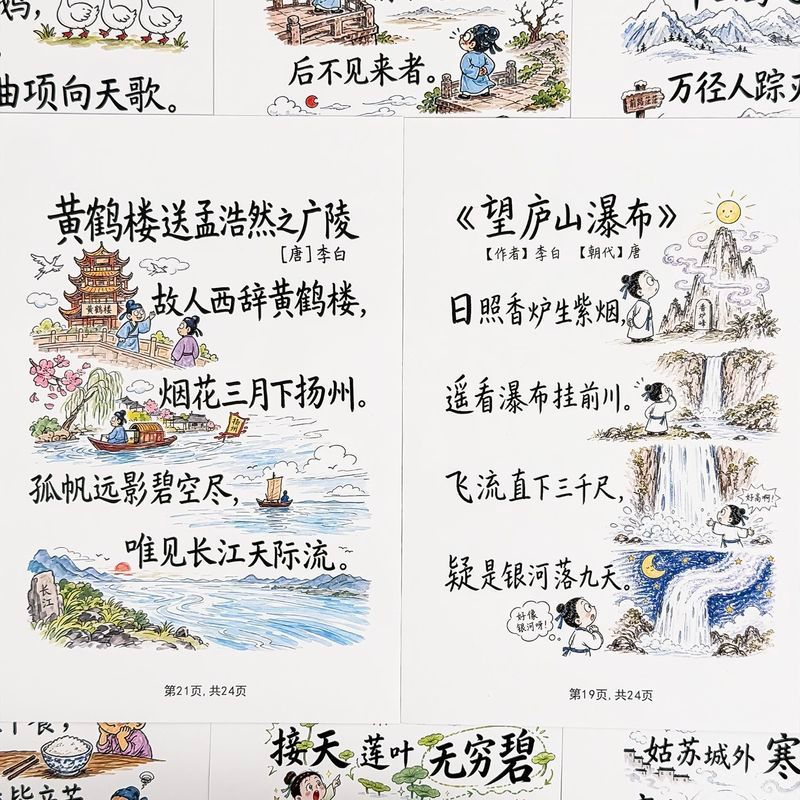 曲项向天歌。
后不见来者。
万径人踪
黄鹤楼送孟浩然之广陵
[唐]李白
黄鹤楼
故人西辞黄鹤楼，
烟花三月下扬州。
扬州
孤帆远影碧空尽，
唯见长江天际流。
长江
第21页，共24页
《望庐山瀑布》
【作者】李白 【朝代】唐
日照香炉生紫烟，
香炉峰
遥看瀑布挂前川。
飞流直下三千尺，
好高啊！
疑是银河落九天。
好像
银河呀！
第19页，共24页
接天莲叶无穷碧
姑苏城外寒